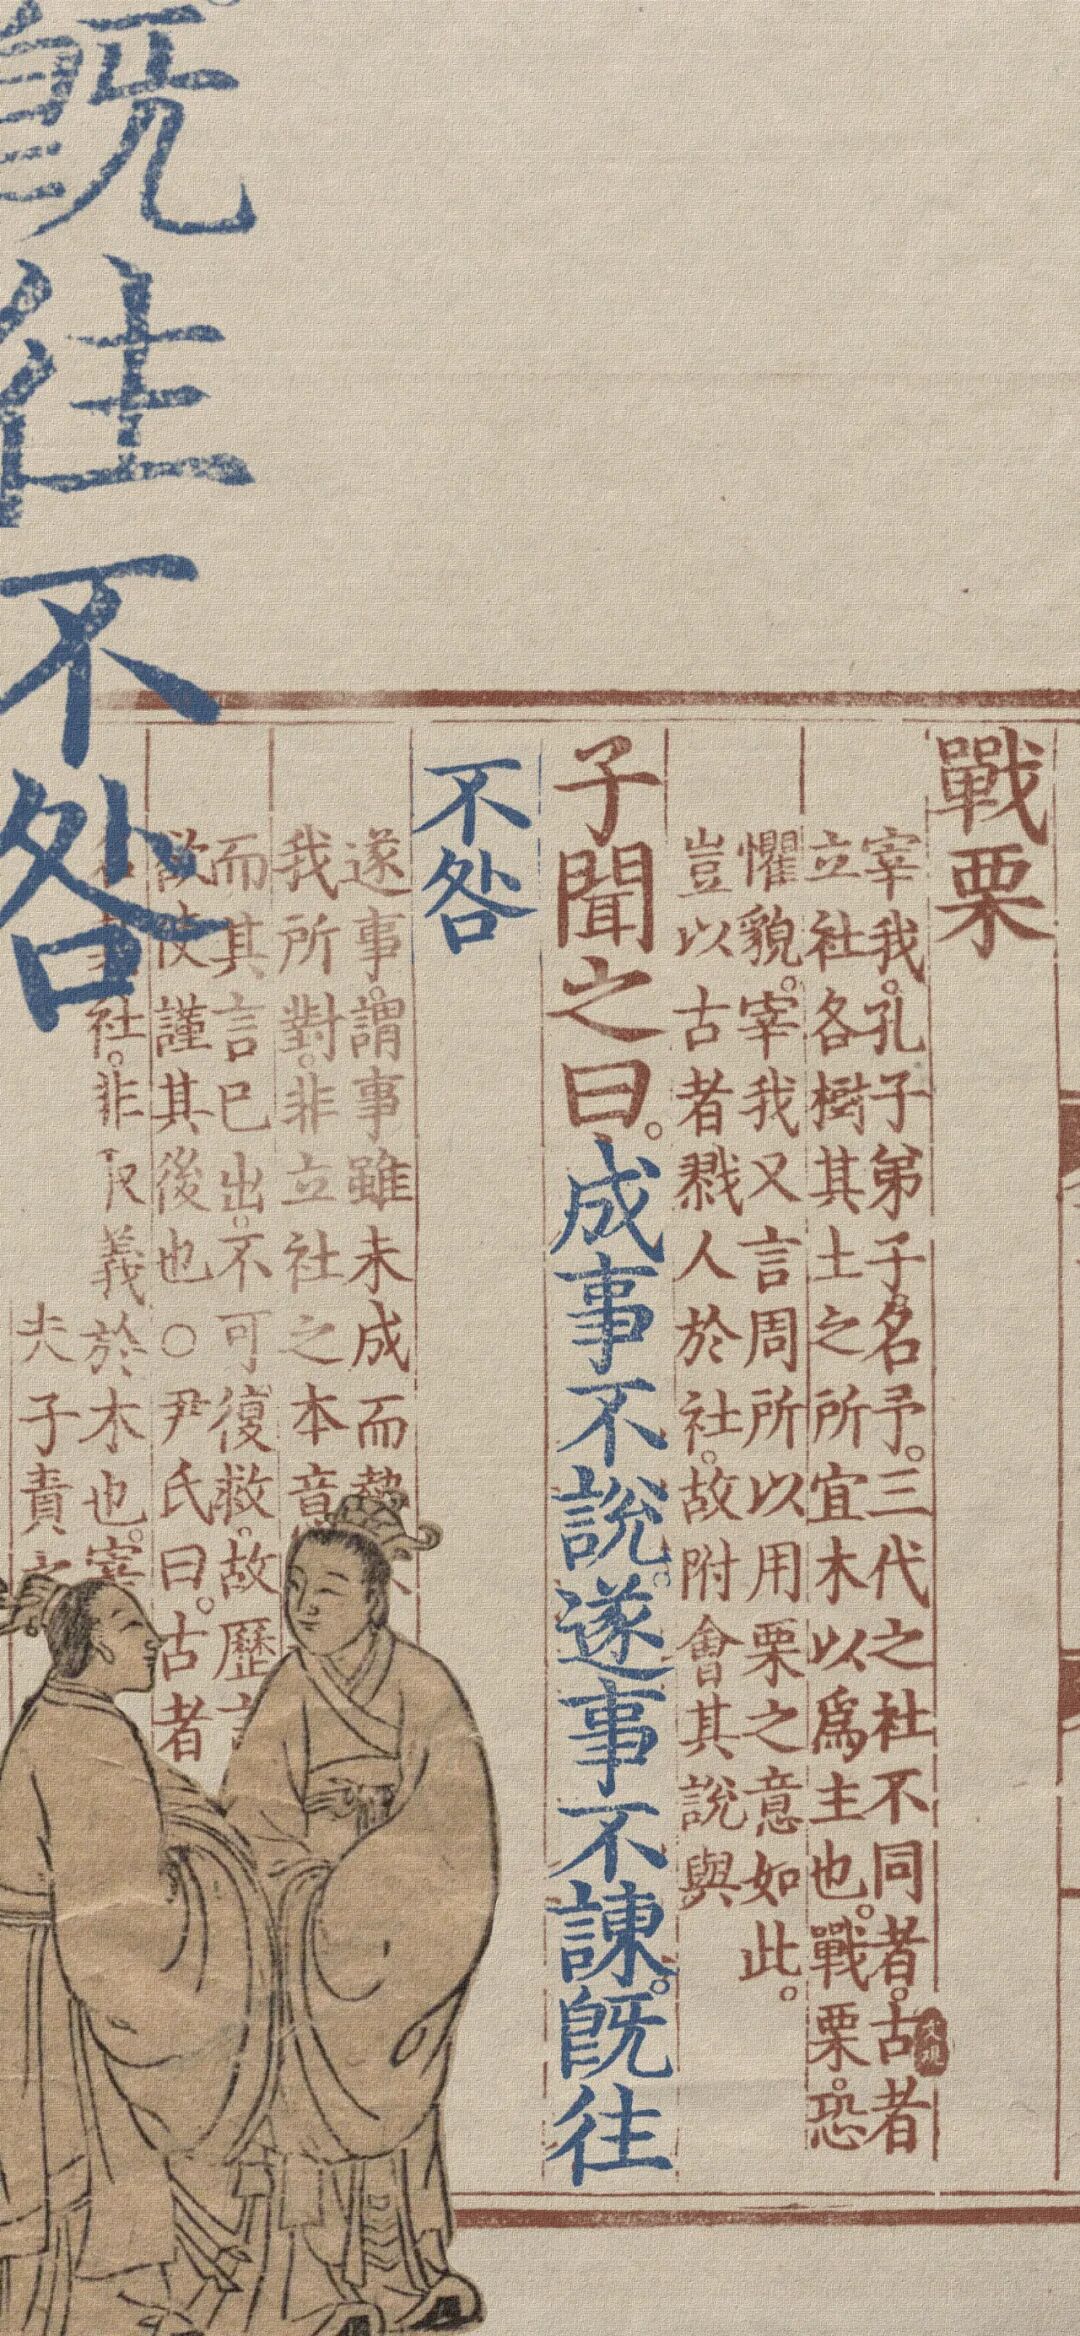 戰栗
宰我。孔子弟子。名予。三代之社不同者。古者
立社各樹其土之所宜木以爲主也。戰栗。恐
懼貌。宰我又言周所以用栗之意如此。
豈以古者戮人於社。故附會其說與
子聞之曰。成事不說。遂事不諫。旣往
不咎
遂事。謂事雖未成而勢
我所對。非立社之本意
而其言已出。不可復救。故歷
欲使謹其後也○尹氏曰。古者
社。非取義於木也。宰
夫子責之
旣往不咎